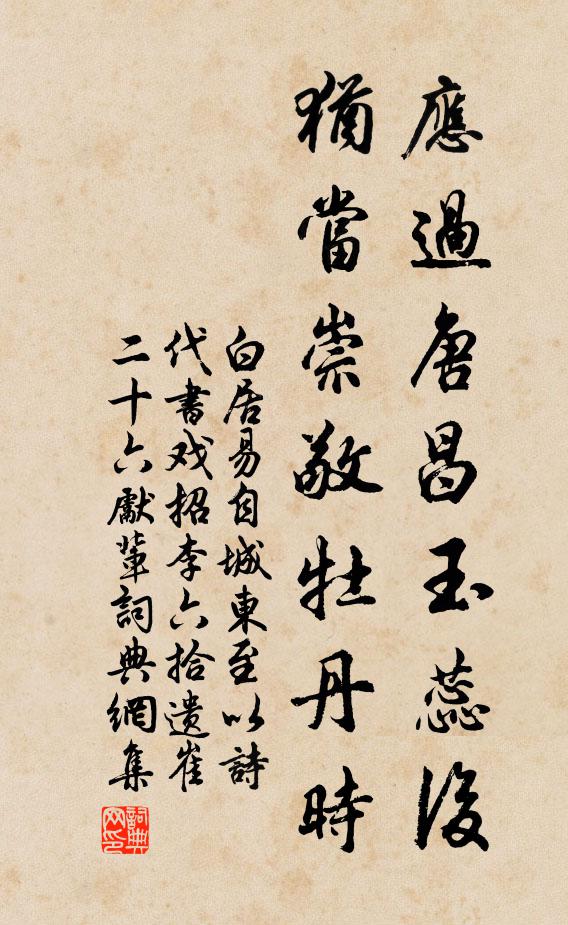 應過唐昌玉蕊後
猶當崇敬牡丹時
白居易自城東至以詩
代書戏招李六拾遺崔
二十六獻輩詞典網集
詞典網印